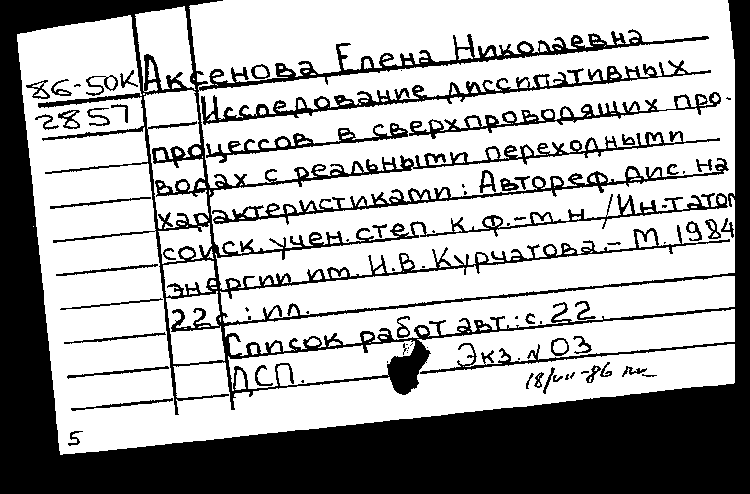 86-50К Аксенова, Елена Николаевна
2857 Исследование диссипативных
процессов в сверхпроводящих про-
водах с реальными переходными
характеристиками: Автореф. дис. на
соиск. учен. степ. к. ф.-т. н /Ин-татом
энергии им. И.В. Курчатова.- М, 1984
22 с.: ил.
Список работ авт.: с. 22.
ДСП. Экз. № 03
18/VII-86
5